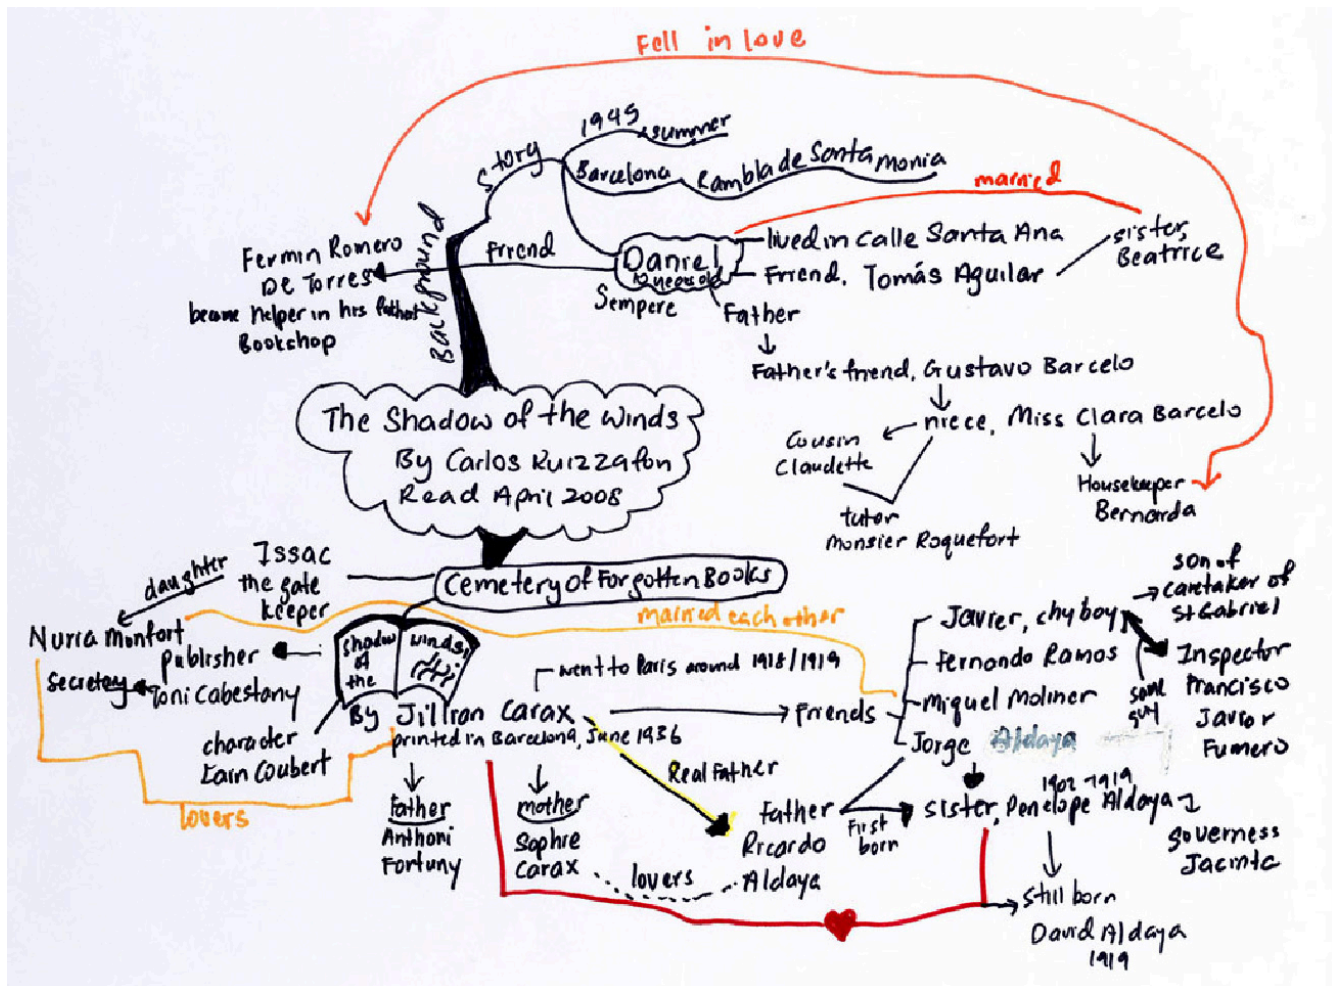 Fell in love
1945
summer
Story
Barcelona
Rambla de Santa monia
married
Background
Friend
Fermin Romero
De Torres
became helper in his father
Bookshop
Daniel
10 years old
Sempere
lived in Calle Santa Ana
Friend, Tomás Aguilar
sister,
Beatrice
Father
Father's friend, Gustavo Barcelo
niece, Miss Clara Barcelo
Cousin
Claudette
Housekeeper
Bernarda
tutor
Monsier Roquefort
The Shadow of the Winds
By Carlos Ruizzafon
Read April 2008
Cemetery of Forgotten Books
Issac
the gate
keeper
daughter
Nuria Monfort
publisher
Secretary
Toni Cabestany
shadow
of
the
winds,
married each other
By Jillian Carax
printed in Barcelona, June 1936
character
Lain Coubert
lovers
went to Paris around 1918/1919
Friends
Javier, chyboy
Fernando Ramos
Miquel Moliner
Jorge Aldaya
son of
caretaker of
St Gabriel
same
guy
Inspector
Francisco
Javior
Fumero
father
Anthoni
Fortuny
mother
Sophie
Carax
Real Father
Father
Ricardo
Aldaya
lovers
First
born
1902-1919
sister, Penelope Aldaya
Governess
Jacinta
still born
David Aldaya
1919